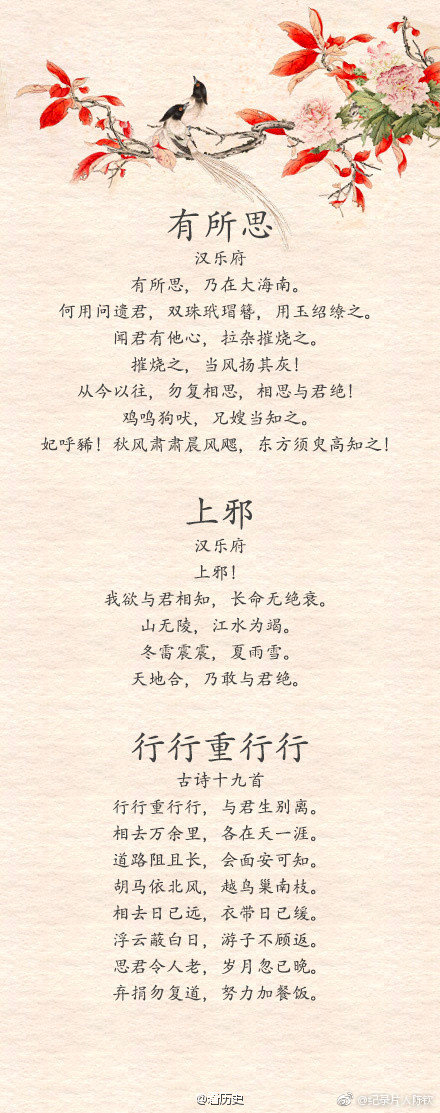 有所思
汉乐府
有所思，乃在大海南。
何用问遗君，双珠玳瑁簪，用玉绍缭之。
闻君有他心，拉杂摧烧之。
摧烧之，当风扬其灰！
从今以往，勿复相思，相思与君绝！
鸡鸣狗吠，兄嫂当知之。
妃呼豨！秋风肃肃晨风飔，东方须臾高知之！
上邪
汉乐府
上邪！
我欲与君相知，长命无绝衰。
山无陵，江水为竭。
冬雷震震，夏雨雪。
天地合，乃敢与君绝。
行行重行行
古诗十九首
行行重行行，与君生别离。
相去万余里，各在天一涯。
道路阻且长，会面安可知。
胡马依北风，越鸟巢南枝。
相去日已远，衣带日已缓。
浮云蔽白日，游子不顾返。
思君令人老，岁月忽已晚。
弃捐勿复道，努力加餐饭。
@看历史
@纪录片人陈钦